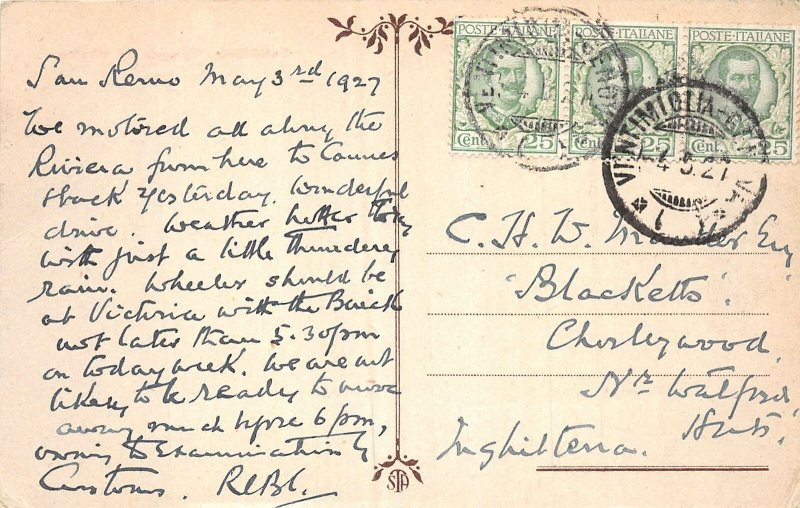 San Remo May 3rd 1927
We motored all along the
Riviera from here to Cannes
& back yesterday. Wonderful
drive. Weather hotter today
with just a little thundery
rain. Wheeler should be
at Victoria with the Buick
not later than 5.30 pm
on today week. We are not
likely to be ready to move
away much before 6 pm,
owing to Examination by
Customs.
POSTE·ITALIANE POSTE·ITALIANE POSTE·ITALIANE
Cent. 25 Cent. 25 Cent. 25
VENTIMIGLIA-GENOVA
VENTIMIGLIA-GENOVA
4.5.27
C. H. W. Esq
"Blacketts".
Chorleywood,
Nr Watford,
Herts.
Inghilterra.
STA